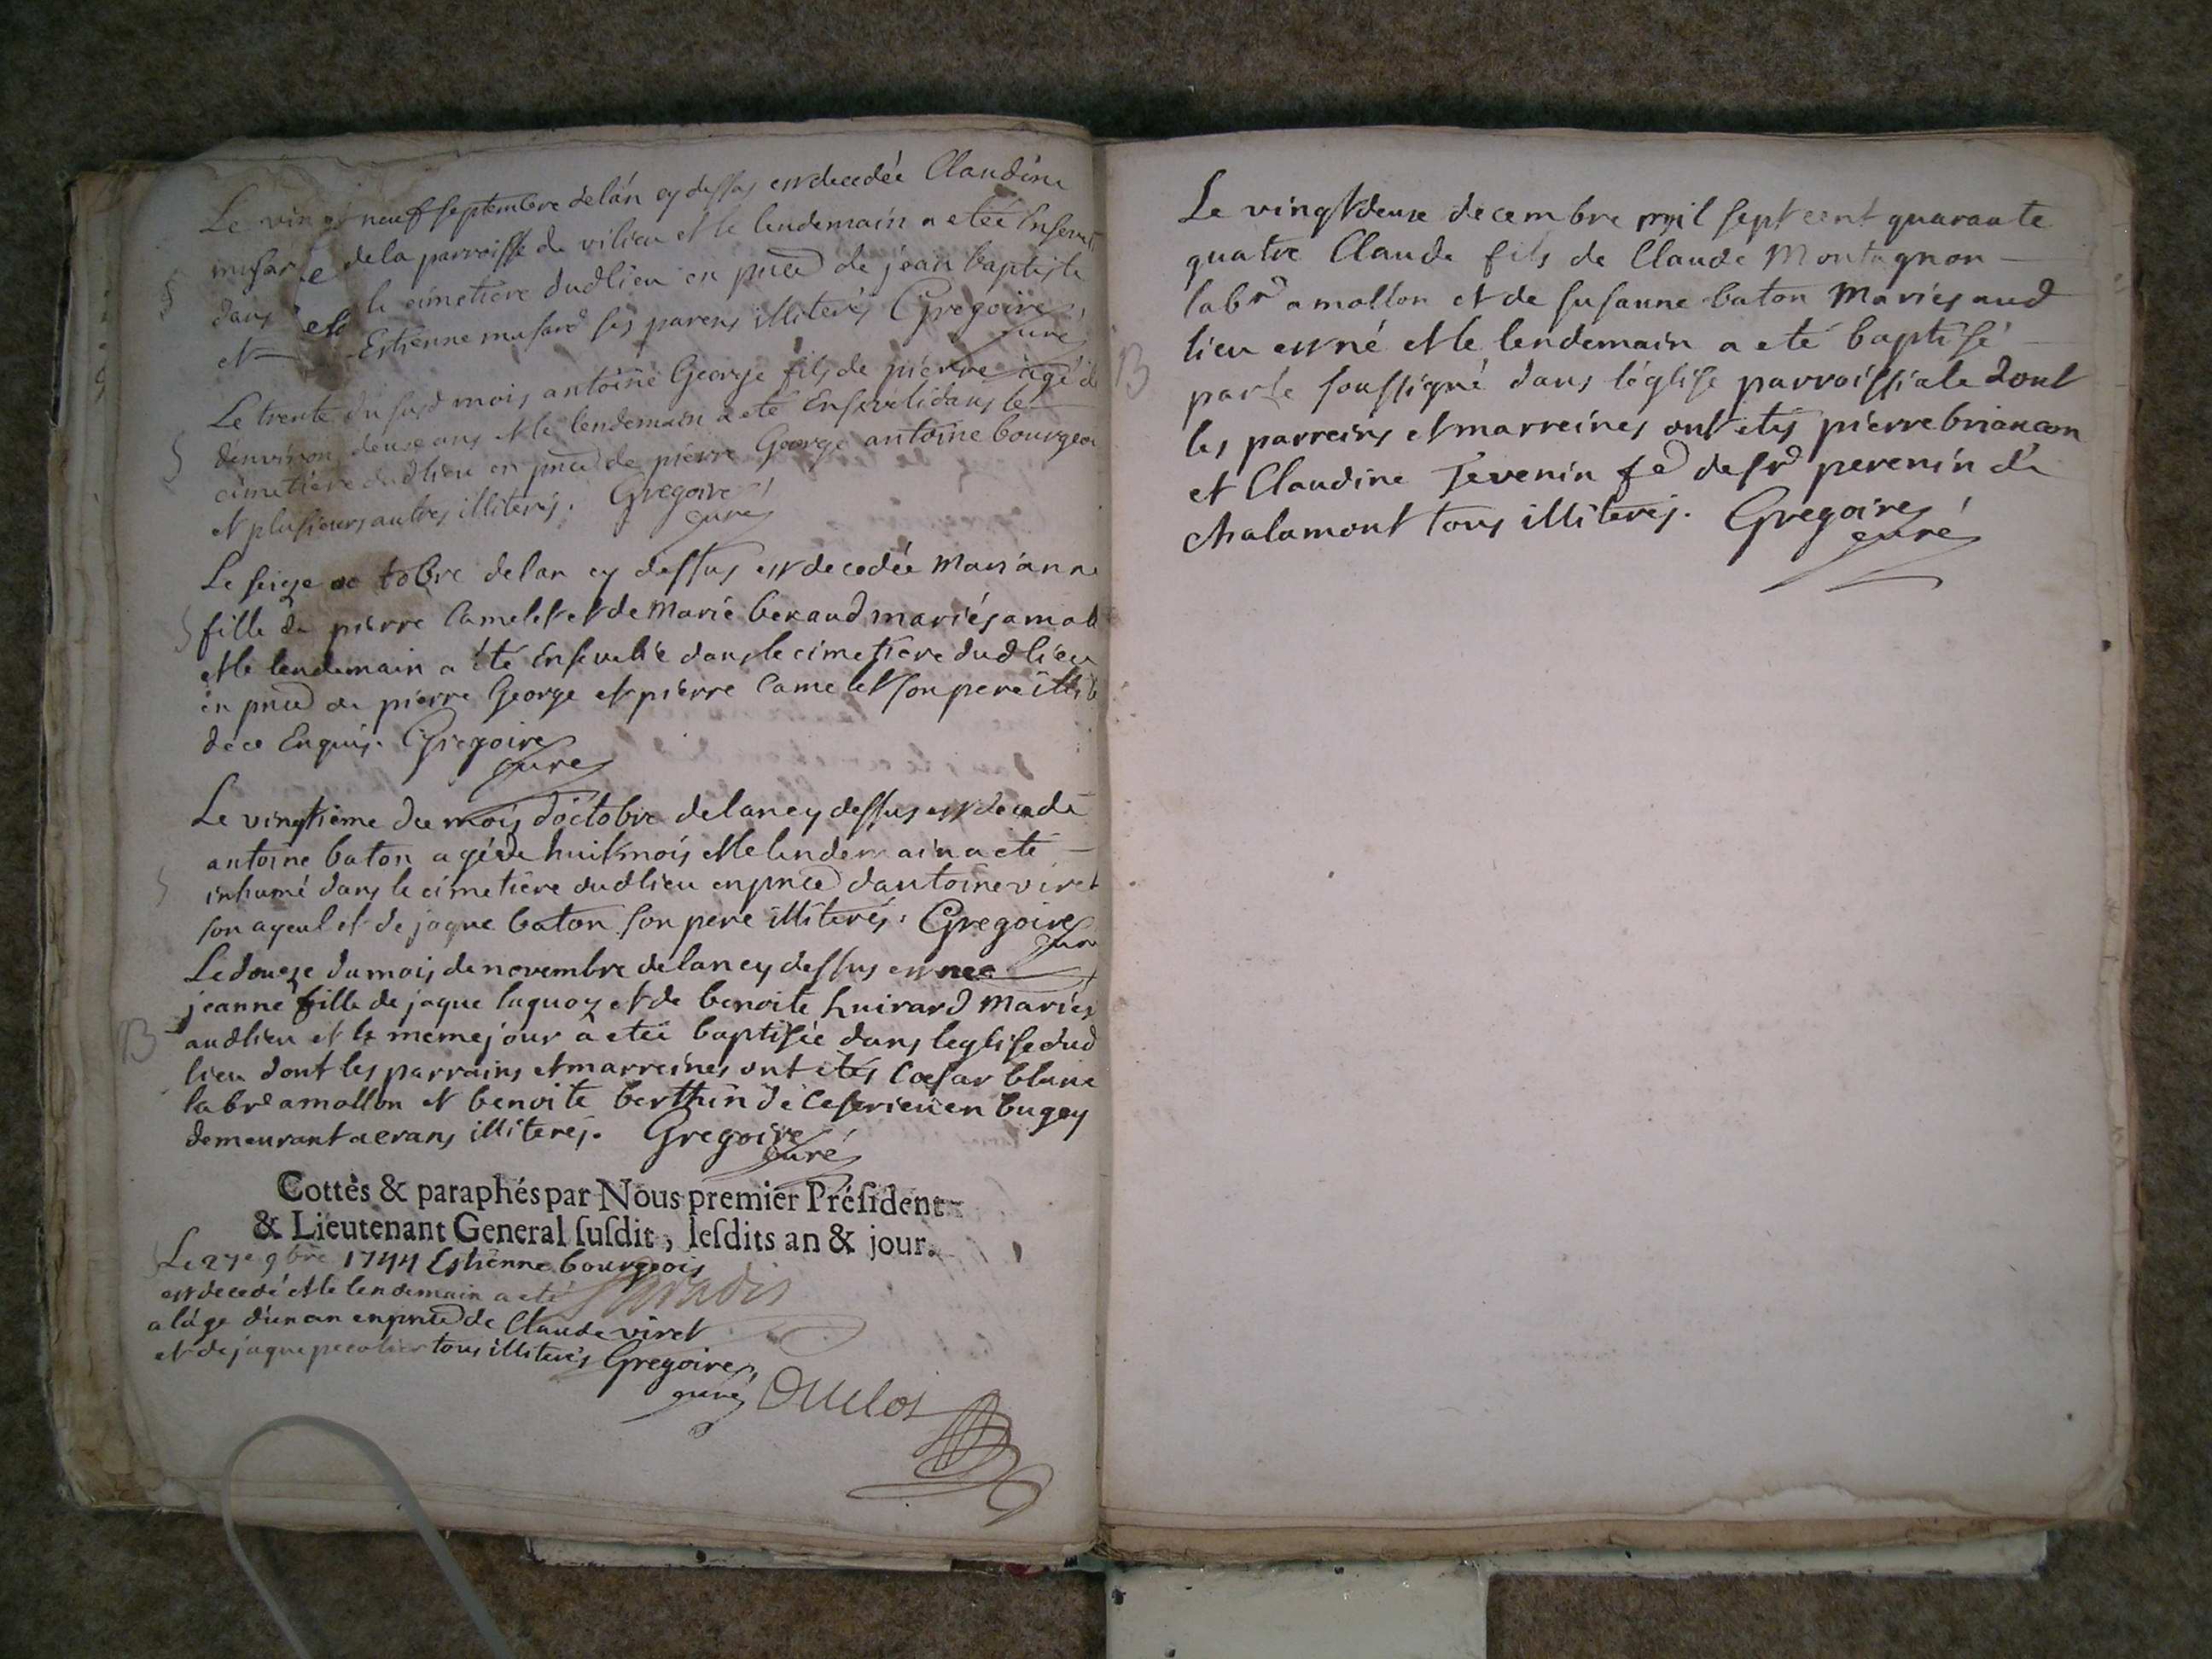 Le vingt neuf septembre de lán cy dessus est decedée Claudine
musar de la parroisse de vilieu et le lendemain a eteé Ensevel
dans le cimetiere dud lieu en pnce de jéan baptiste
et Estienne musard ses parens illiterés Gregoire
curé
Le trente du susd mois antoine George fils de piérre agé de
dénviron deuse ans et le lendemain a eté Enseveli dans le
cimetière dud lieu en pnce de piérre George antoine bourgeoi
et plusieurs autres illiterés. Gregoire
curé
Le seize octobre de lan cy dessus est decedée Marianne
fille de pierre Camelet et de Marie beraud mariés a mol
et le lendemain a été Ensevelie dans le cimetiere dud lieu
en pnce de pierre George et pierre Camelet son pere
de ce Enquis. Gregoire
curé
Le vingtiéme du mois dóctobre de lan cy dessus est decedé
antoine baton agé de huit mois et le lendemain a eté
inhumé dans le cimetiére dud lieu en pnce dantoine viret
son ayeul et de jaque baton son pere illiterés. Gregoire
cur
Le douze du mois de novembre de lan cy dessus est neé
jeanne fille de jaque laquoz et de benoite huirard Mariés
aud lieu et le meme jour a eteé baptisée dans leglise dud
lieu dont les parrains et marreines ont etés Cœsar blanc
labr a mollon et benoite berthin de Ceserieu en bugey
demeurant a crans illiterés. Gregoire
curé
Cottés & paraphés par Nous premier Président
& Lieutenant General susdit, lesdits an & jour.
Le 27e 9bre 1744 Estienne bourgeois
est decedé et le lendemain a eté
a láge d'un an en pnce de Claude viret
et de jaque tous illiterés Gregoire
curé
B
Le vingt deuse decembre mil sept cent quarante
quatre Claude fils de Claude Montagnon
labr a mollon et de susanne baton Mariés aud
lieu est né et le lendemain a eté baptisé
B
par le soussigné dans léglise parroissiale dont
les parreins et marreines ont etés piérre briancon
et Claudine Tevenin fe de fr perenin de
chalamont tous illiterés. Gregoire
curé